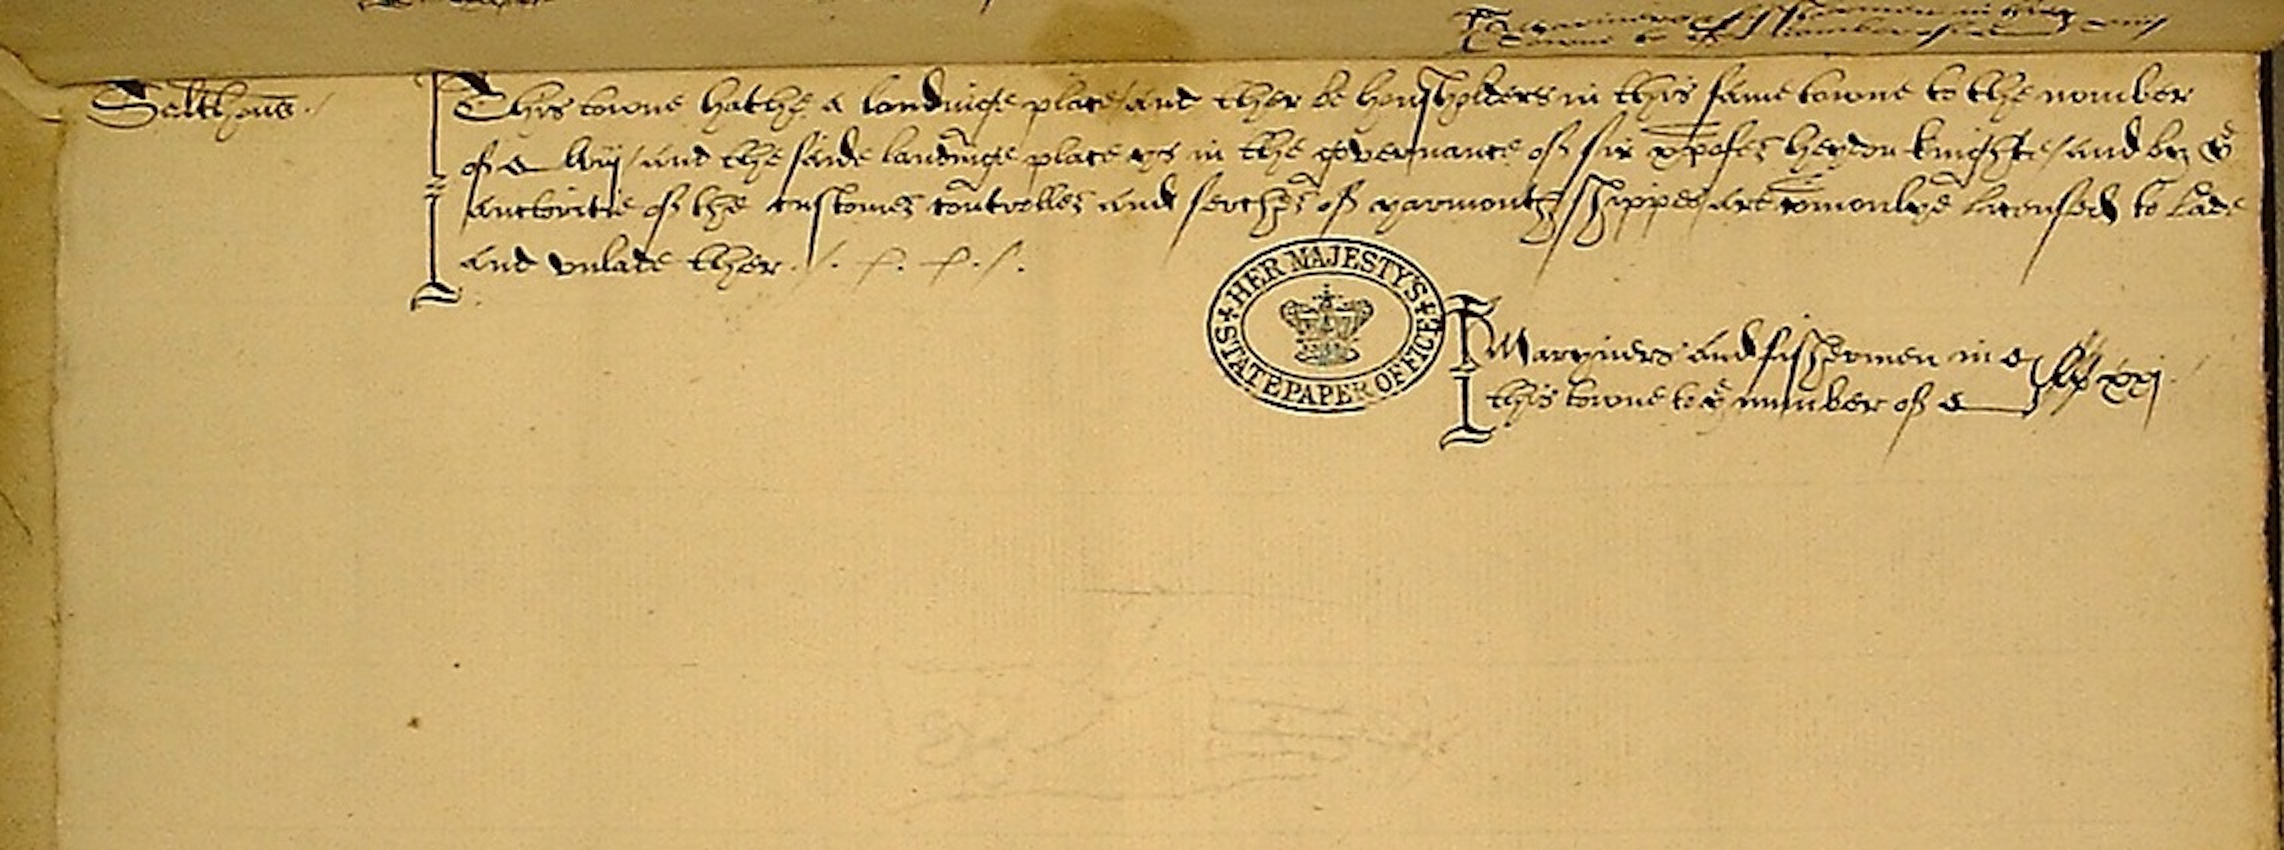 Salthous ./
This towne hathe a landinge place / and ther be housholders in this same towne to the nomber
of a lviij / and the saide landinge place ys in the governance of sir xpofer heydon knighte / and by ye
auctoritie of the customer controller and sercher of yarmouth shippes are comonlye licensed to lade
and vnlade ther ./.
HER MAJESTY'S
STATE PAPER OFFICE
Maryners and fishermen in
this towne to ye number of xxj